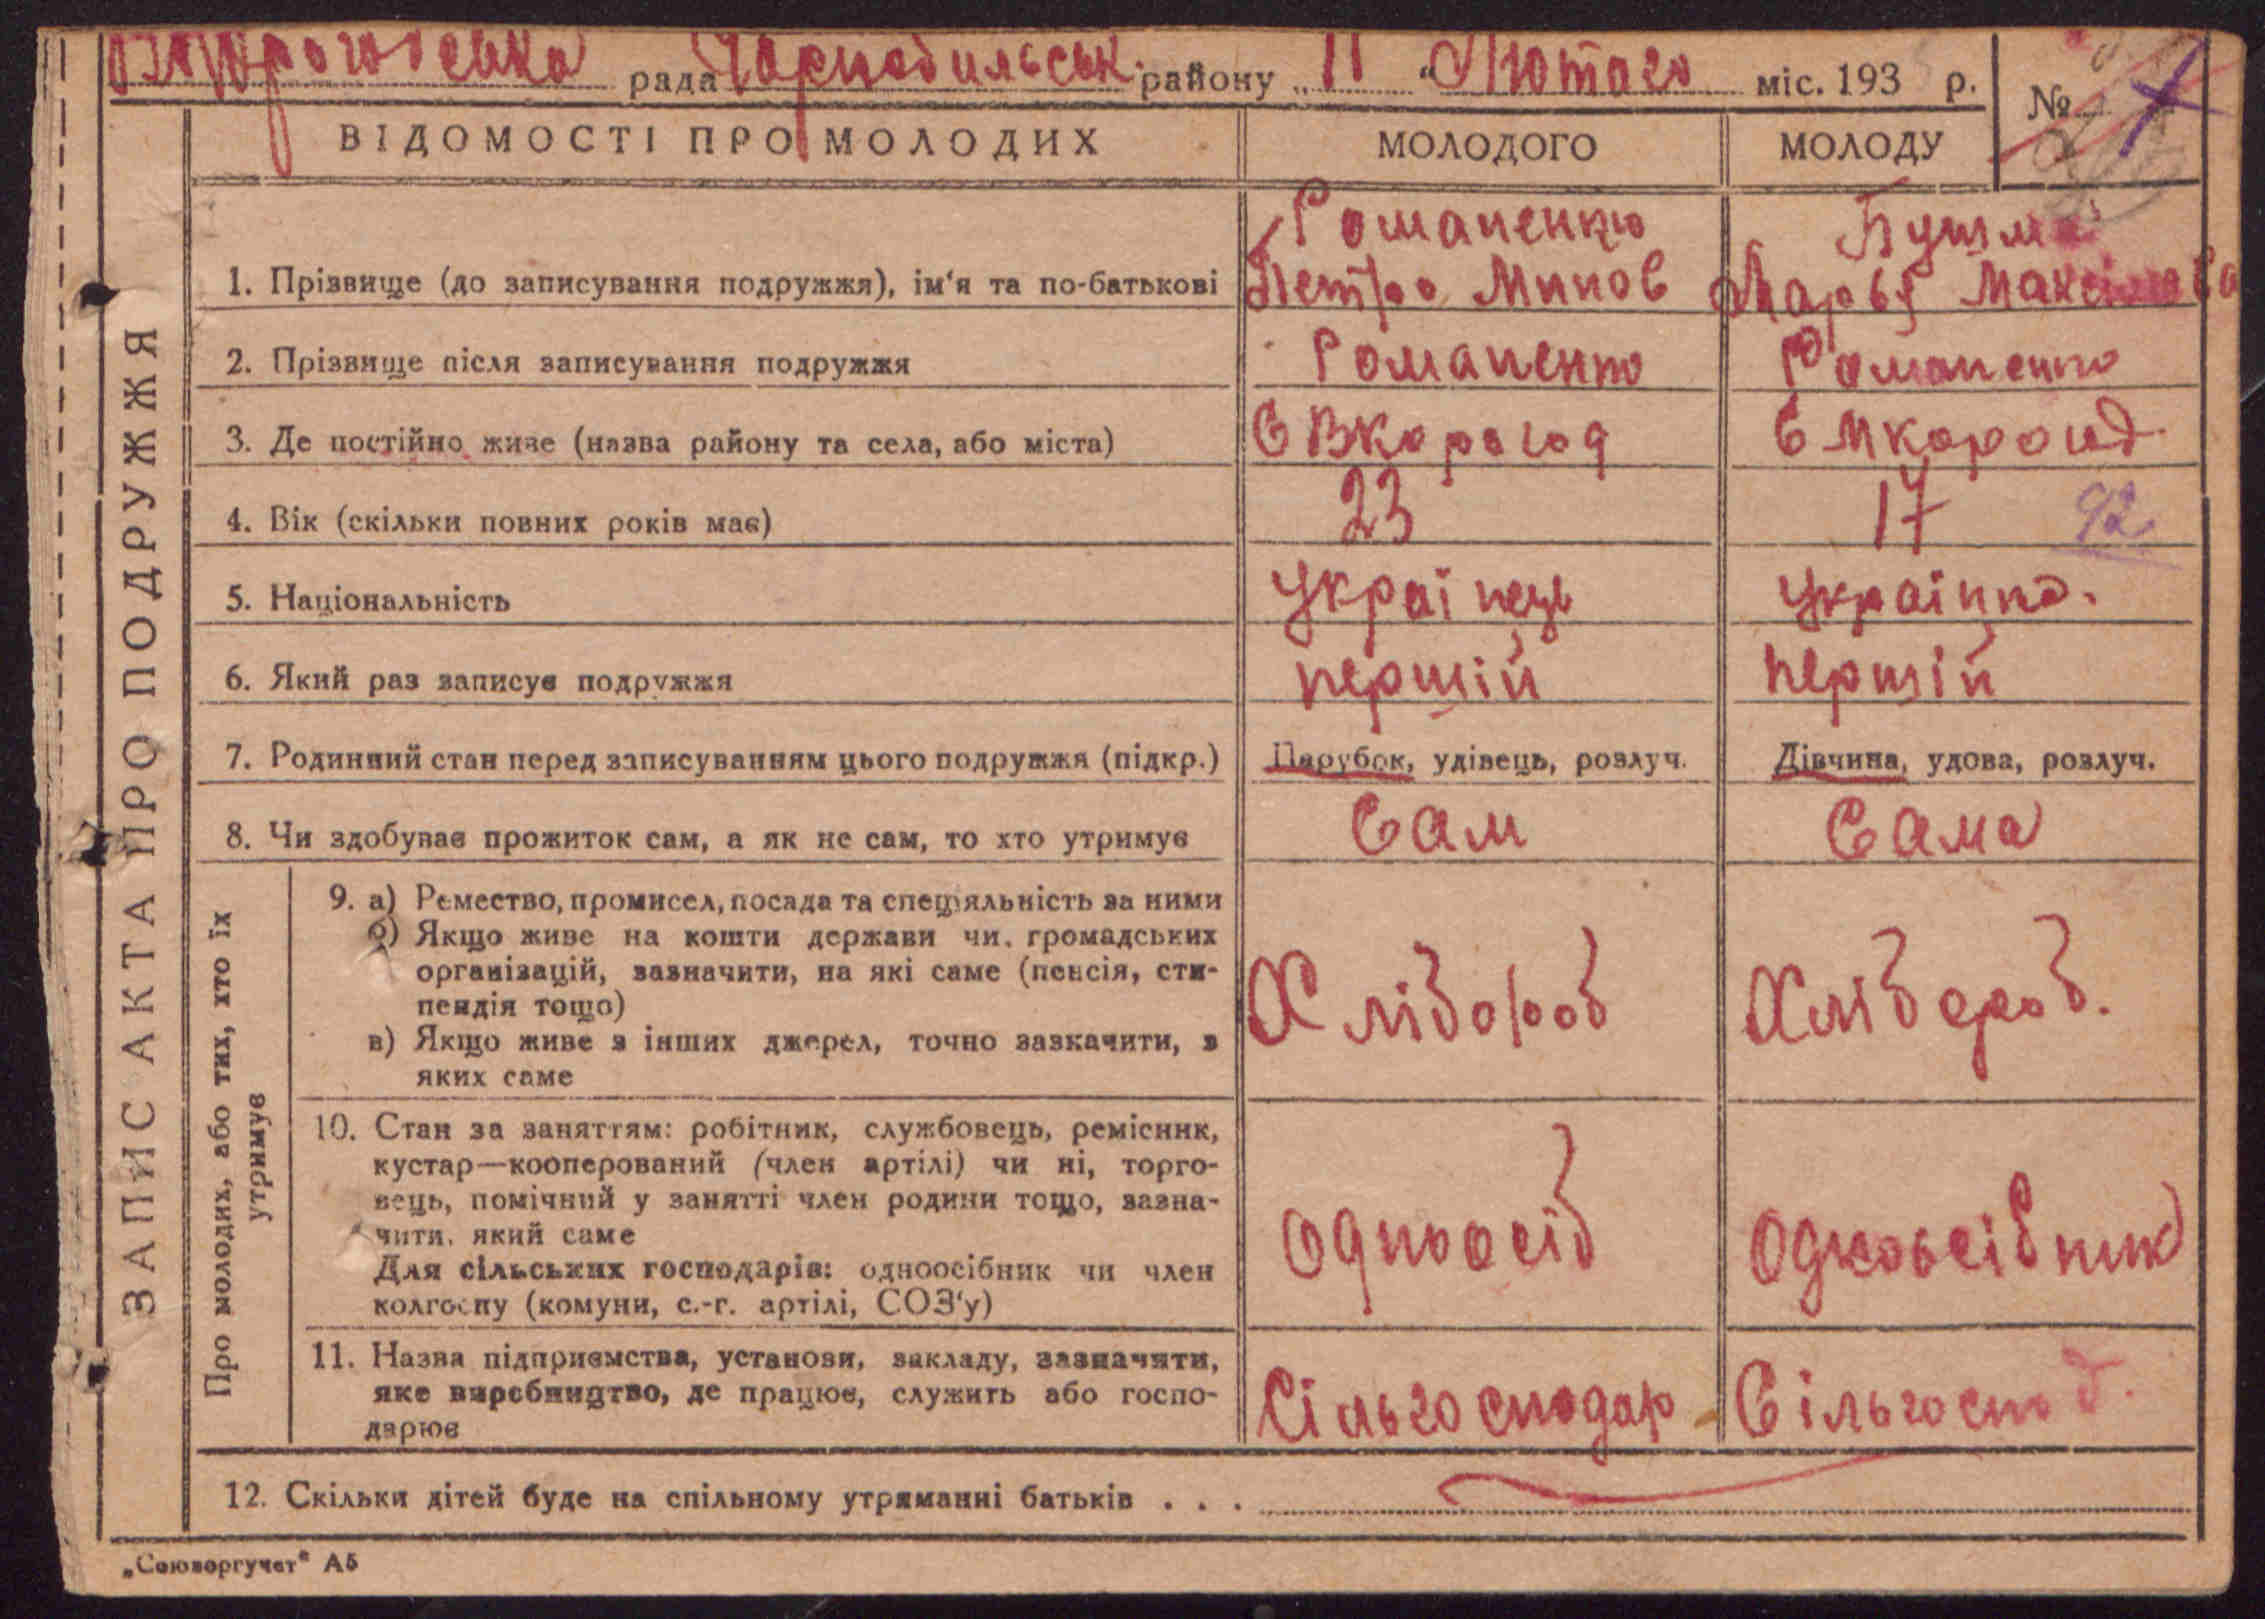 рада Чорнобильськ. району „11“ Лютого міс. 193 р. №
ВІДОМОСТІ ПРО МОЛОДИХ МОЛОДОГО МОЛОДУ
ЗАПИС АКТА ПРО ПОДРУЖЖЯ
Романенко
1. Прізвище (до записування подружжя), ім'я та по-батькові Петро Минов Марья Максімова
2. Прізвище після записування подружжя Романенко Романенко
3. Де постійно живе (назва району та села, або міста) с Вкорогод
4. Вік (скільки повних років має) 23 17 92
5. Національність Українець Українка.
6. Який раз записує подружжя першій першій
7. Родинний стан перед записуванням цього подружжя (підкр.) Парубок, удівець, розлуч. Дівчина, удова, розлуч.
8. Чи здобуває прожиток сам, а як не сам, то хто утримує Сам Сама
Про молодих, або тих, хто їх утримує
9. а) Ремество, промисел, посада та спеціяльність за ними
б) Якщо живе на кошти держави чи громадських
організацій, зазначити, на які саме (пенсія, сти-
пендія тощо)
в) Якщо живе з інших джерел, точно зазкачити, з
яких саме
Хлібороб Хлібороб.
10. Стан за заняттям: робітник, службовець, ремісник,
кустар—кооперований (член артілі) чи ні, торго-
вець, помічний у занятті член родини тощо, зазна-
чити, який саме
Для сільських господарів: одноосібник чи член
колгоспу (комуни, с.-г. артілі, СОЗ'у)
Одноосіб Одноосібник
11. Назва підприємства, установи, закладу, зазначити,
яке виробництво, де працює, служить або госпо-
дарює
Сільгосподар Сільгоспод.
12. Скільки дітей буде на спільному утриманні батьків . . .
„Союзоргучет" А5